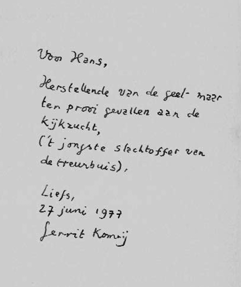 Voor Hans,
Herstellende van de geel- maar
ten prooi gevallen aan de
kijkzucht,
('t jongste slachtoffer van
de treurbuis).
Liefs,
27 juni 1977
Gerrit Komrij